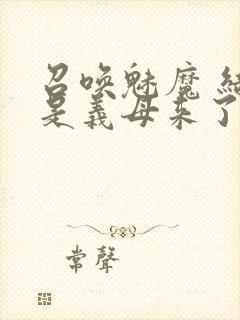 召唤魅魔 结
是義母来了
常聲